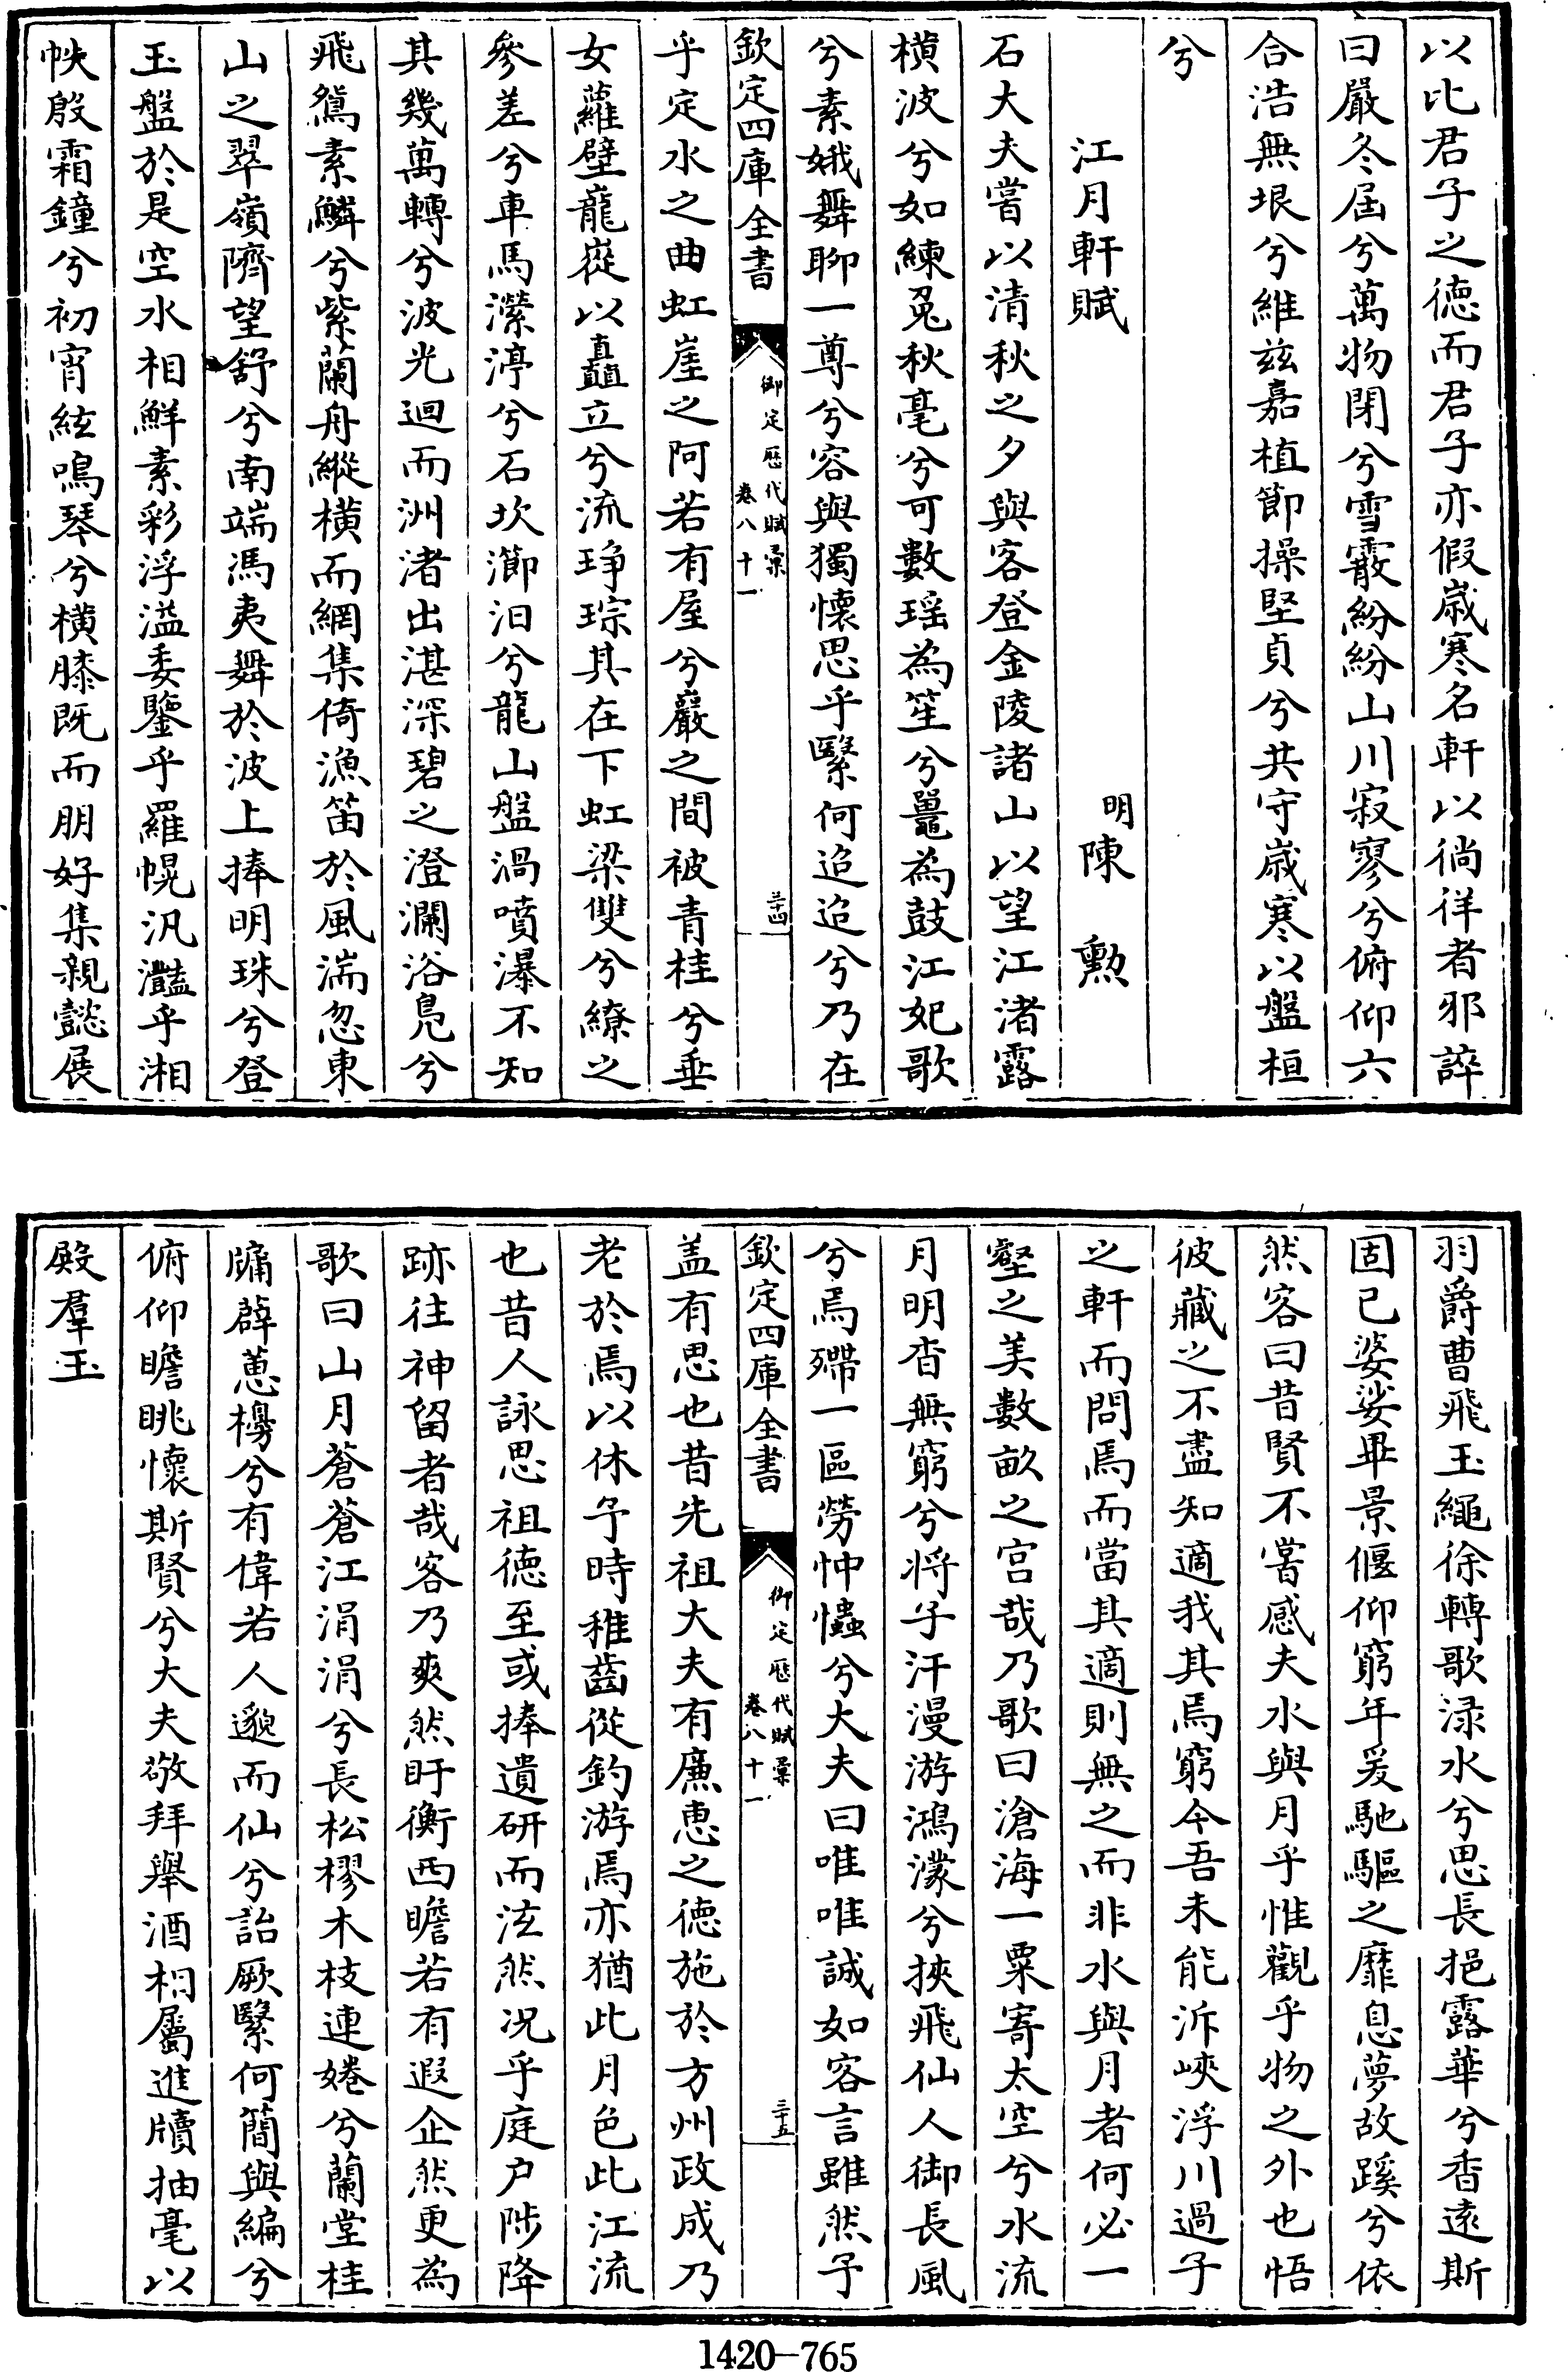 以比君子之徳而君子亦假嵗寒名軒以徜徉者邪誶
曰嚴冬屆兮萬物閉兮雪霰紛紛山川寂寥兮俯仰六
合浩無垠兮維兹嘉植節操堅貞兮共守嵗寒以盤桓
兮
江月軒賦
明陳勲
石大夫嘗以清秋之夕與客登金陵諸山以望江渚露
横波兮如練兔秋毫兮可數瑶為笙兮鼉為鼓江妃歌
兮素娥舞聊一尊兮容與獨懐思乎繄何迨迨兮乃在
欽定四庫全書
御定歴代賦彚
卷八十一
三十四
乎定水之曲虹崖之阿若有屋兮巖之間被青桂兮垂
女蘿壁巃嵸以矗立兮流琤琮其在下虹梁雙兮繚之
參差兮車馬瀠渟兮石坎㴉汩兮龍山盤渦噴瀑不知
其幾萬轉兮波光迴而洲渚出湛深碧之澄瀾浴鳬兮
飛鴛素鱗兮紫蘭舟縱横而網集倚漁笛於風湍忽東
山之翠嶺隮望舒兮南端馮夷舞於波上捧明珠兮登
玉盤於是空水相鮮素彩浮溢委鑒乎羅幌汎灩乎湘
帙殷霜鐘兮初宵絃鳴琴兮横膝既而朋好集親懿展
羽爵曹飛玉繩徐轉歌渌水兮思長挹露華兮香逺斯
固已婆娑毋景偃仰窮年爰馳驅之靡息夢故蹊兮依
然客曰昔賢不嘗感夫水與月乎惟觀乎物之外也悟
彼藏之不盡知適我其焉窮今吾未能泝峽浮川過子
之軒而問焉而當其適則無之而非水與月者何必一
壑之美數畝之宫哉乃歌曰滄海一粟寄太空兮水流
月明杳無窮兮将子汗漫游鴻濛兮挾飛仙人御長風
兮焉殢一區勞忡㦬兮大夫曰唯唯誠如客言雖然予
欽定四庫全書
御定歴代賦彚
卷八十一
三十五
盖有思也昔先祖大夫有亷惠之徳施於方州政成乃
老於焉以休予時稚齒從釣游焉亦猶此月色此江流
也昔人詠思祖徳至或捧遺研而泫然況乎庭户陟降
跡往神留者哉客乃爽然盱衡西瞻若有遐企然更為
歌曰山月蒼蒼江涓涓兮長松樛木枝連婘兮蘭堂桂
牖薜蕙櫋兮有偉若人邈而仙兮詒厥繄何簡與編兮
俯仰瞻眺懐斯賢兮大夫敬拜舉酒相屬進牘抽毫以
殿羣玉
1420—765